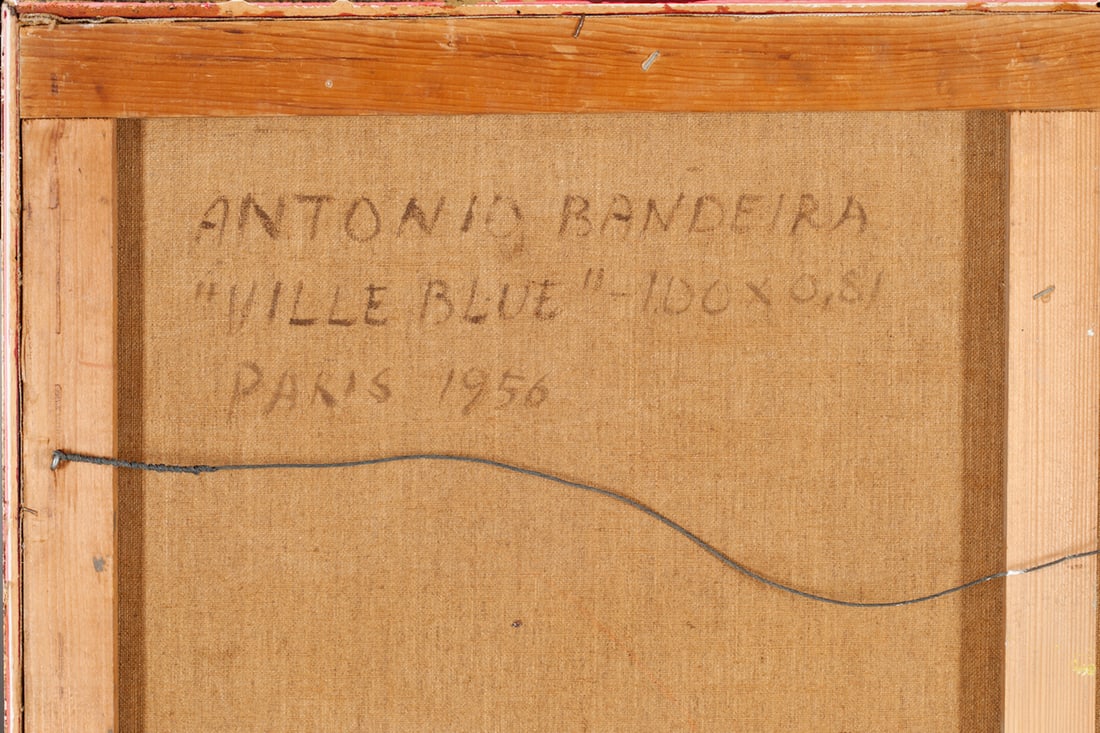 ANTONIO BANDEIRA
"VILLE BLUE" - 1.00 X 0,81
PARIS 1956